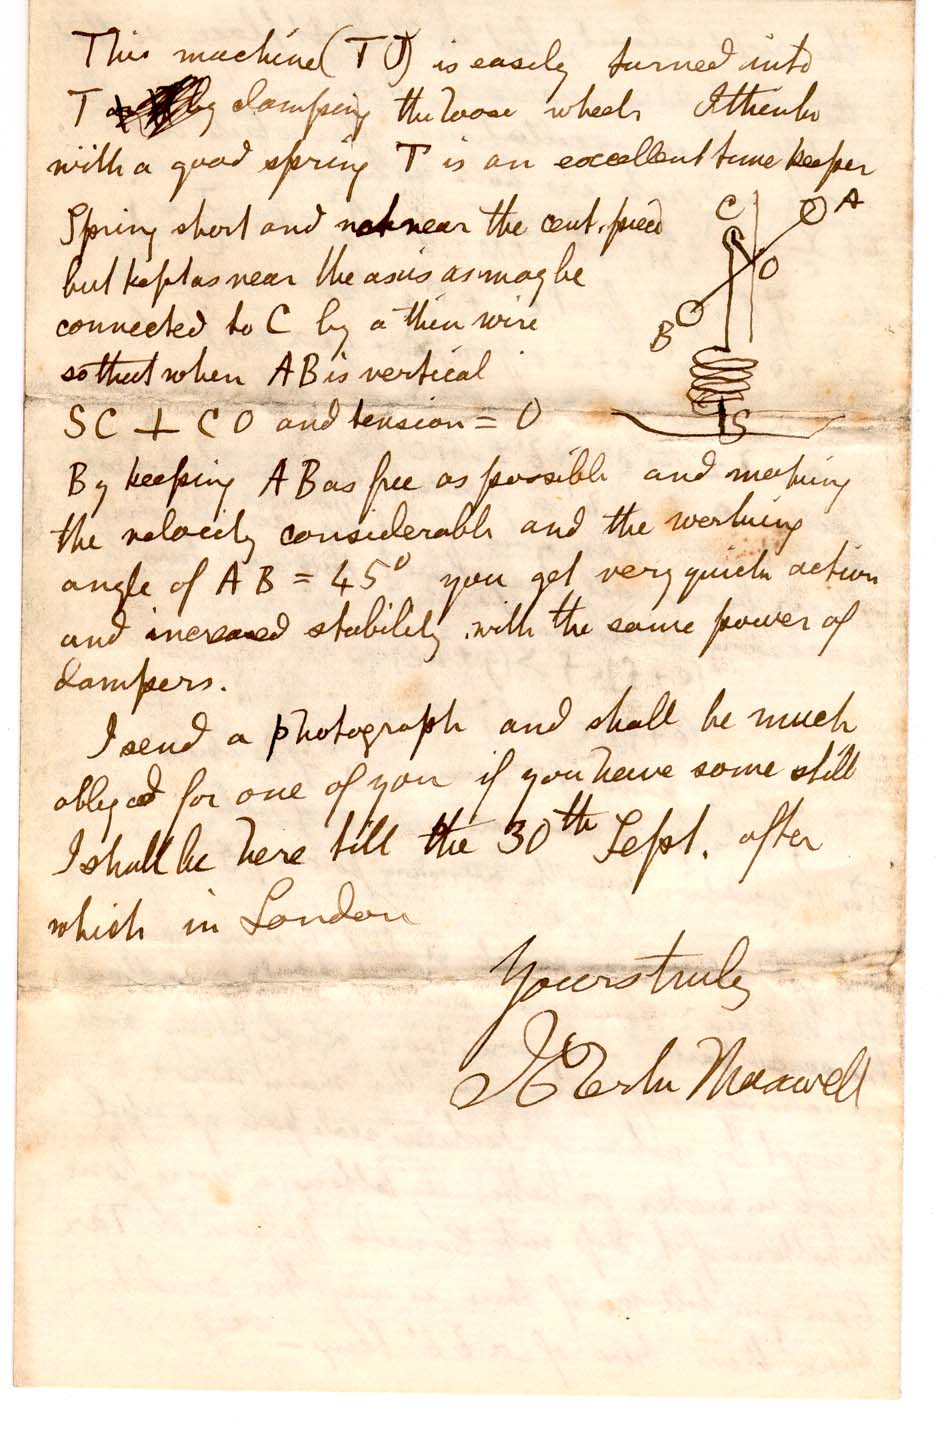 This machine (TJ) is easily turned into
T by clamping the loose wheels I think
with a good spring T is an excellent time keeper
Spring short and not near the cent. piece
but kept as near the axis as may be
connected to C by a thin wire
so that when AB is vertical
SC ⊥ CO and tension = 0
C A
O
B
S
By keeping AB as free as possible and making
the velocity considerable and the working
angle of AB = 45° you get very quick action
and increased stability with the same power of
dampers.
I send a photograph and shall be much
obliged for one of you if you have some still
I shall be here till the 30th Sept. after
which in London
Yours truly
J Clerk Maxwell